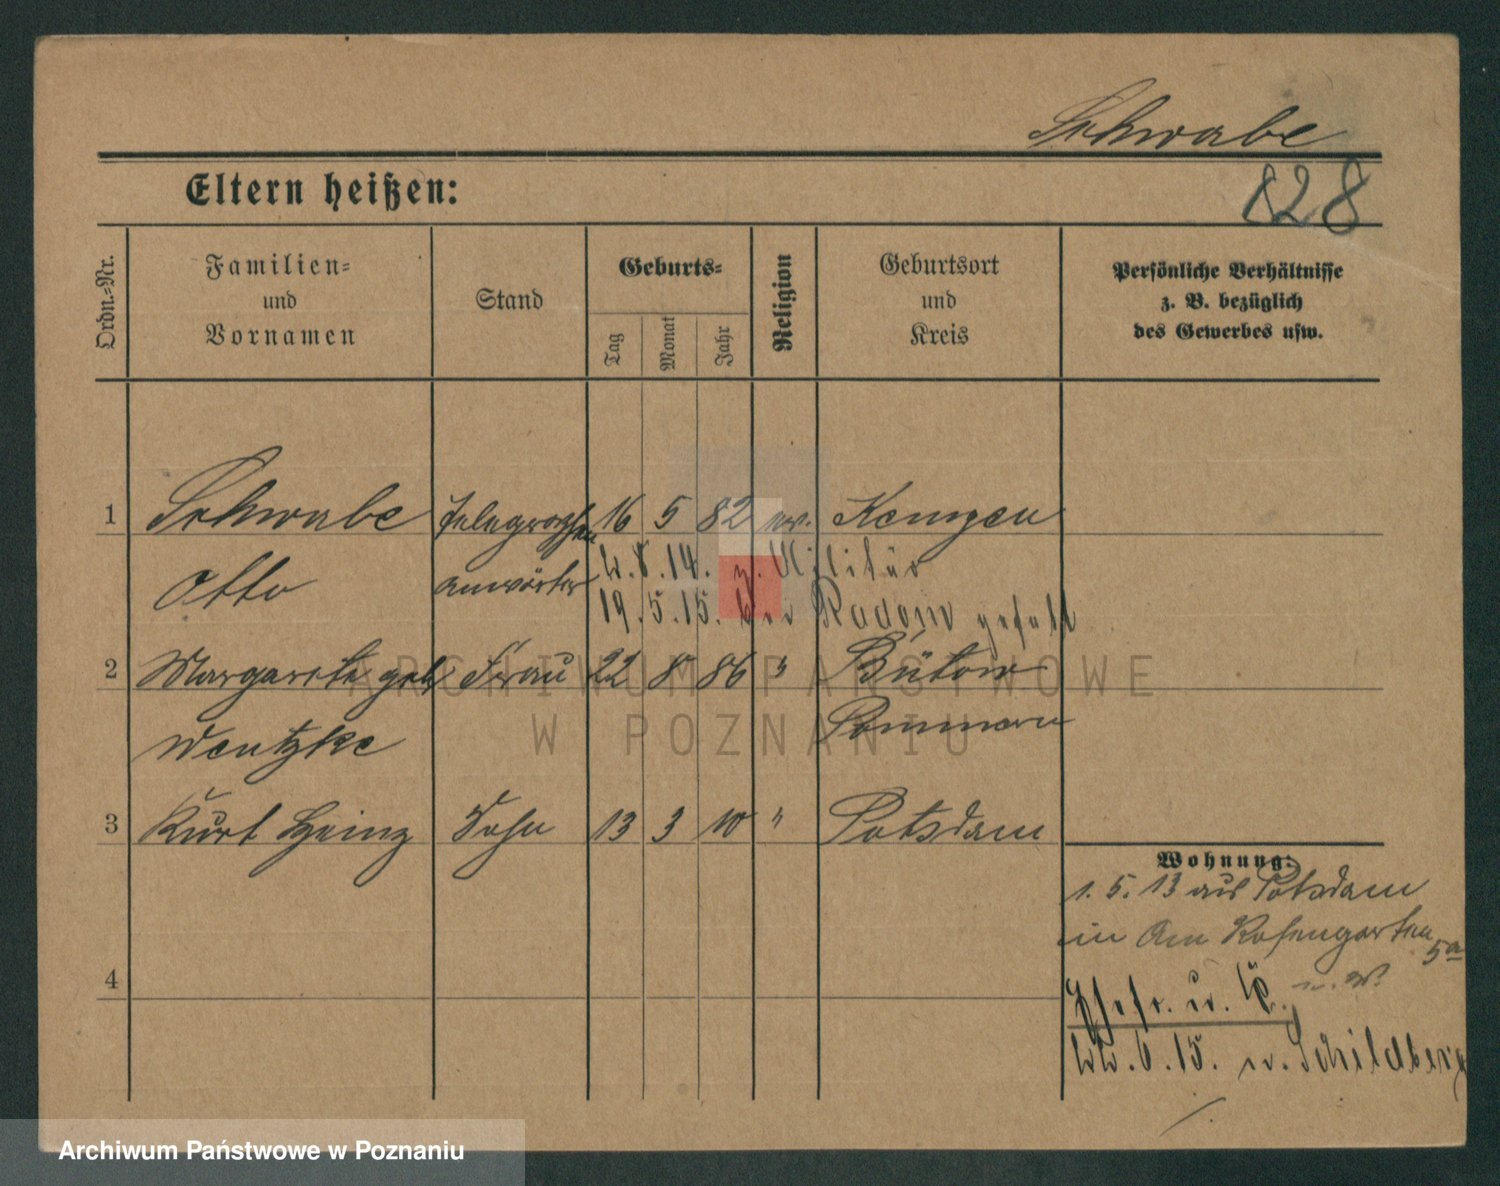 Schwabe
Eltern heißen:
828
Ordn.-Nr.
Familien-
und
Vornamen
Stand
Geburts-
Tag
Monat
Jahr
Religion
Geburtsort
und
Kreis
Persönliche Verhältnisse
z. B. bezüglich
des Gewerbes usw.
1 Schwabe Telegraphen 16 5 82 ev. Kempen
Otto anwärter
8.14. z. Militär
19.5.15. bei Radom gefall
2 Margarete geb Frau 22 8 86 " Bütow
Wentzke Pommern
3 Kurt Heinz Sohn 13 3 10 " Potsdam
Wohnung:
1. 5. 13 aus Potsdam
in Am Rosengarten
5a
4
Ehefr. u. K.
6.15. n. Schildberg
ARCHIWUM PAŃSTWOWE
W POZNANIU
Archiwum Państwowe w Poznaniu